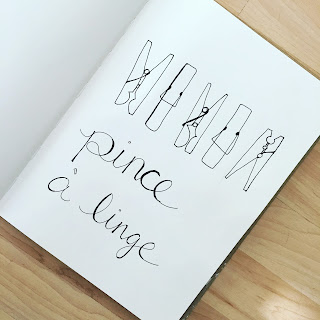 pince
à linge